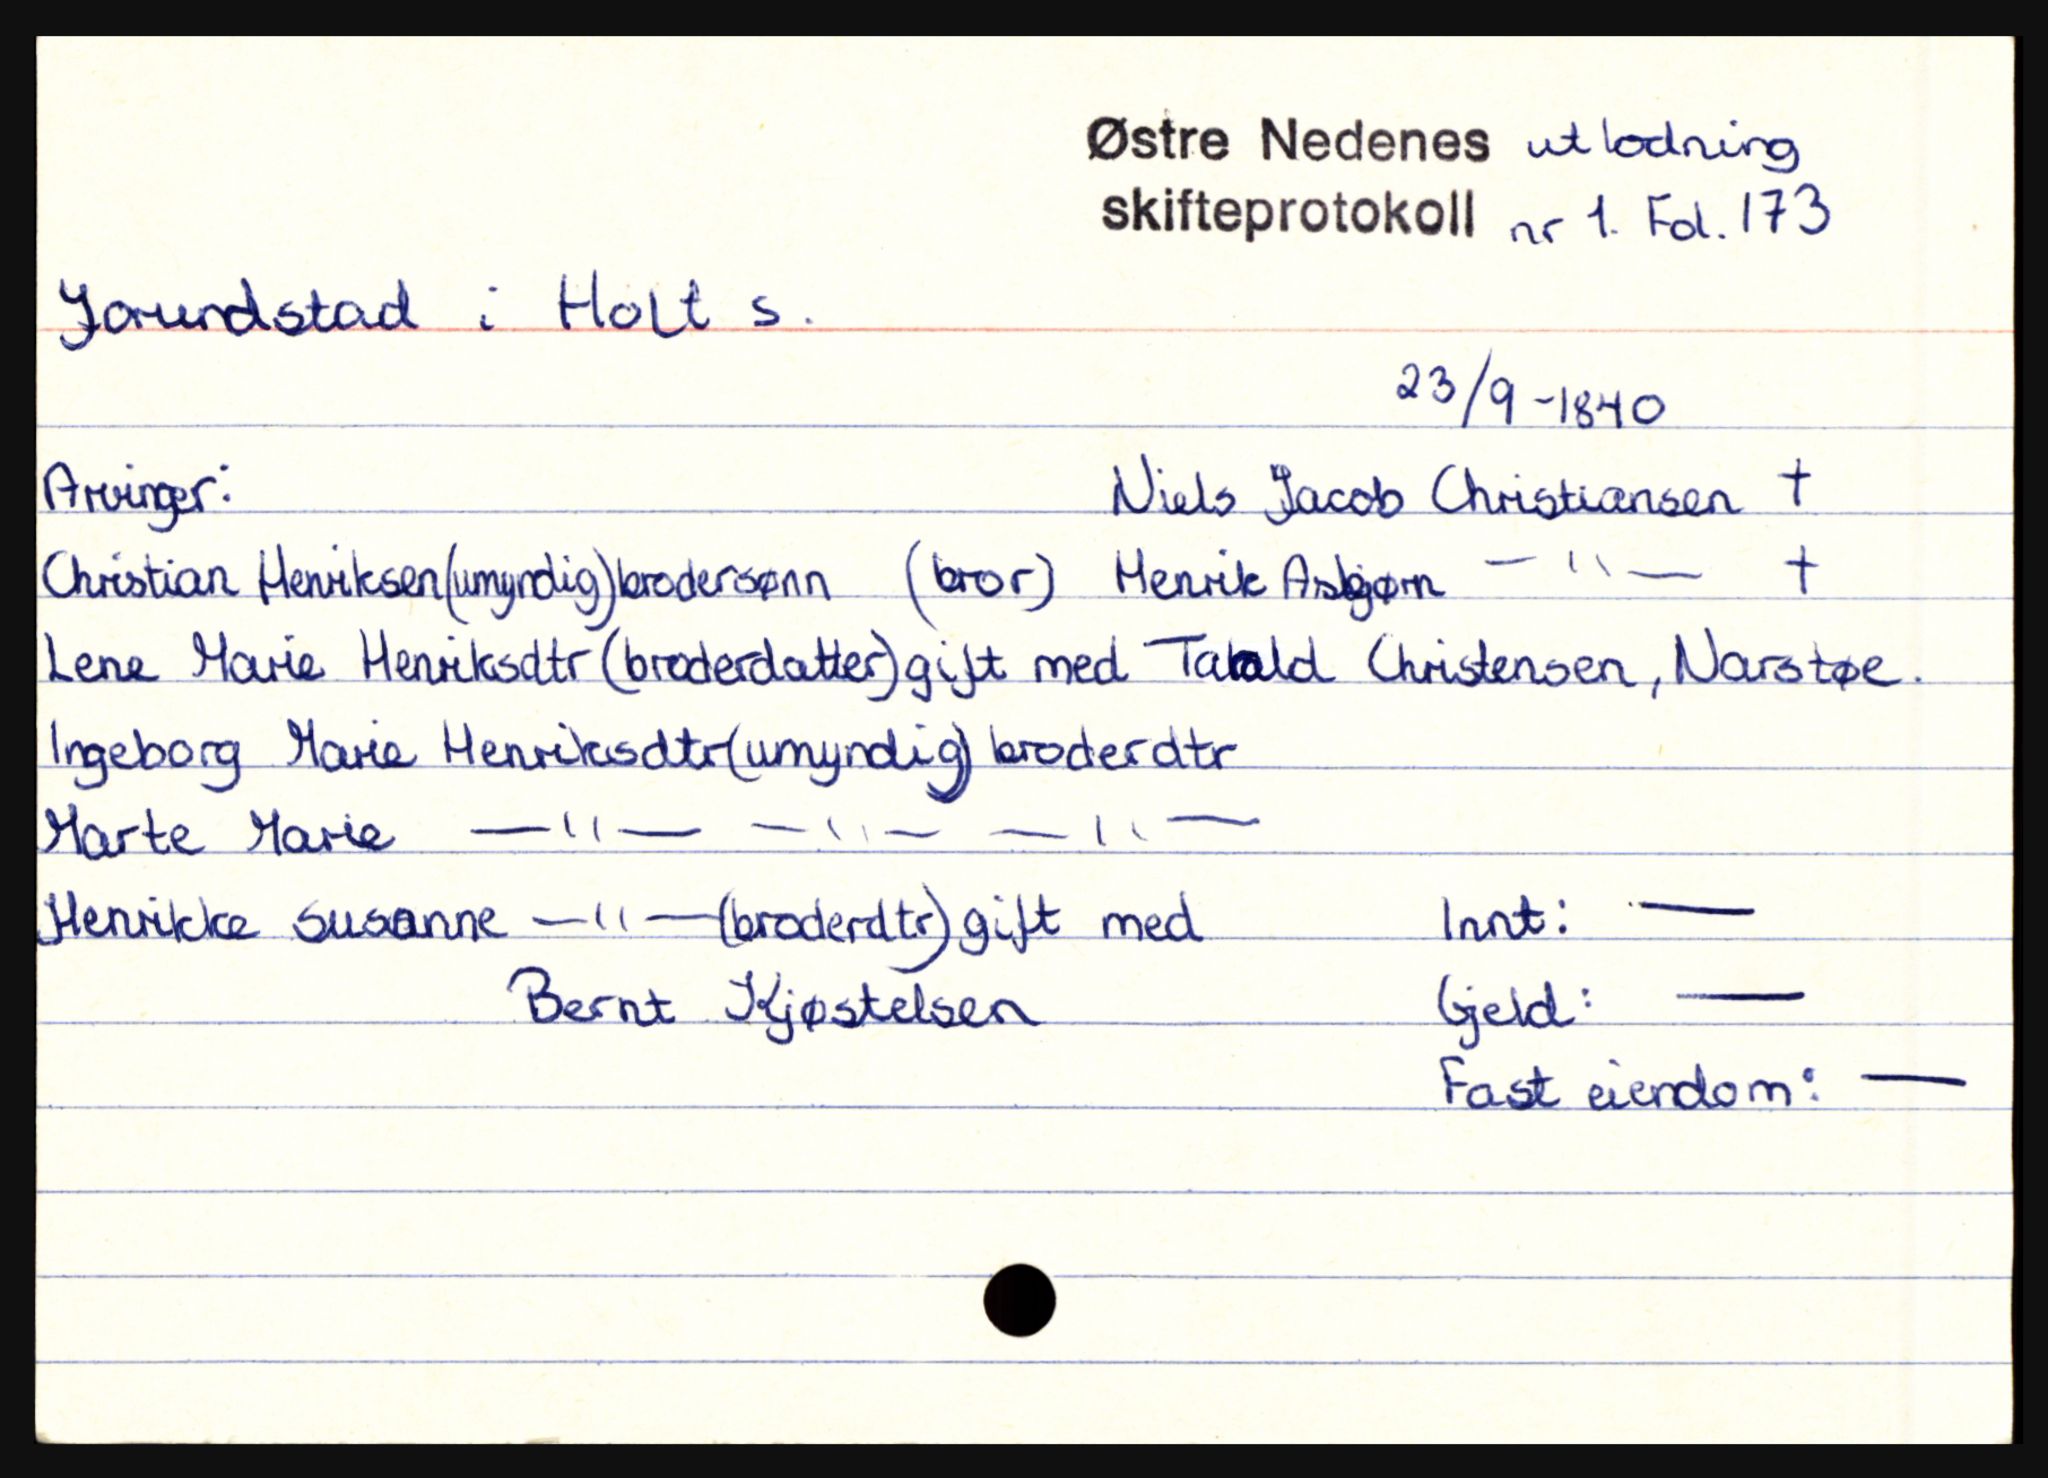 Østre Nedenes utlodning
skifteprotokoll nr 1. Fol. 173
Jorundstad i Holt s.
23/9-1840
Arvinger: Niels Jacob Christiansen †
Christian Henriksen (umyndig) brodersønn (bror) Henrik Asbjørn —"— †
Lene Marie Henriksdtr (broderdatter) gift med Christensen, Narstøe.
Ingeborg Marie Henriksdtr (umyndig) broderdtr
Marte Marie —"— —"— —"—
Henrikke Susanne —"— (broderdtr) gift med Innt: —
Bernt Kjøstelsen Gjeld: —
Fast eiendom: —